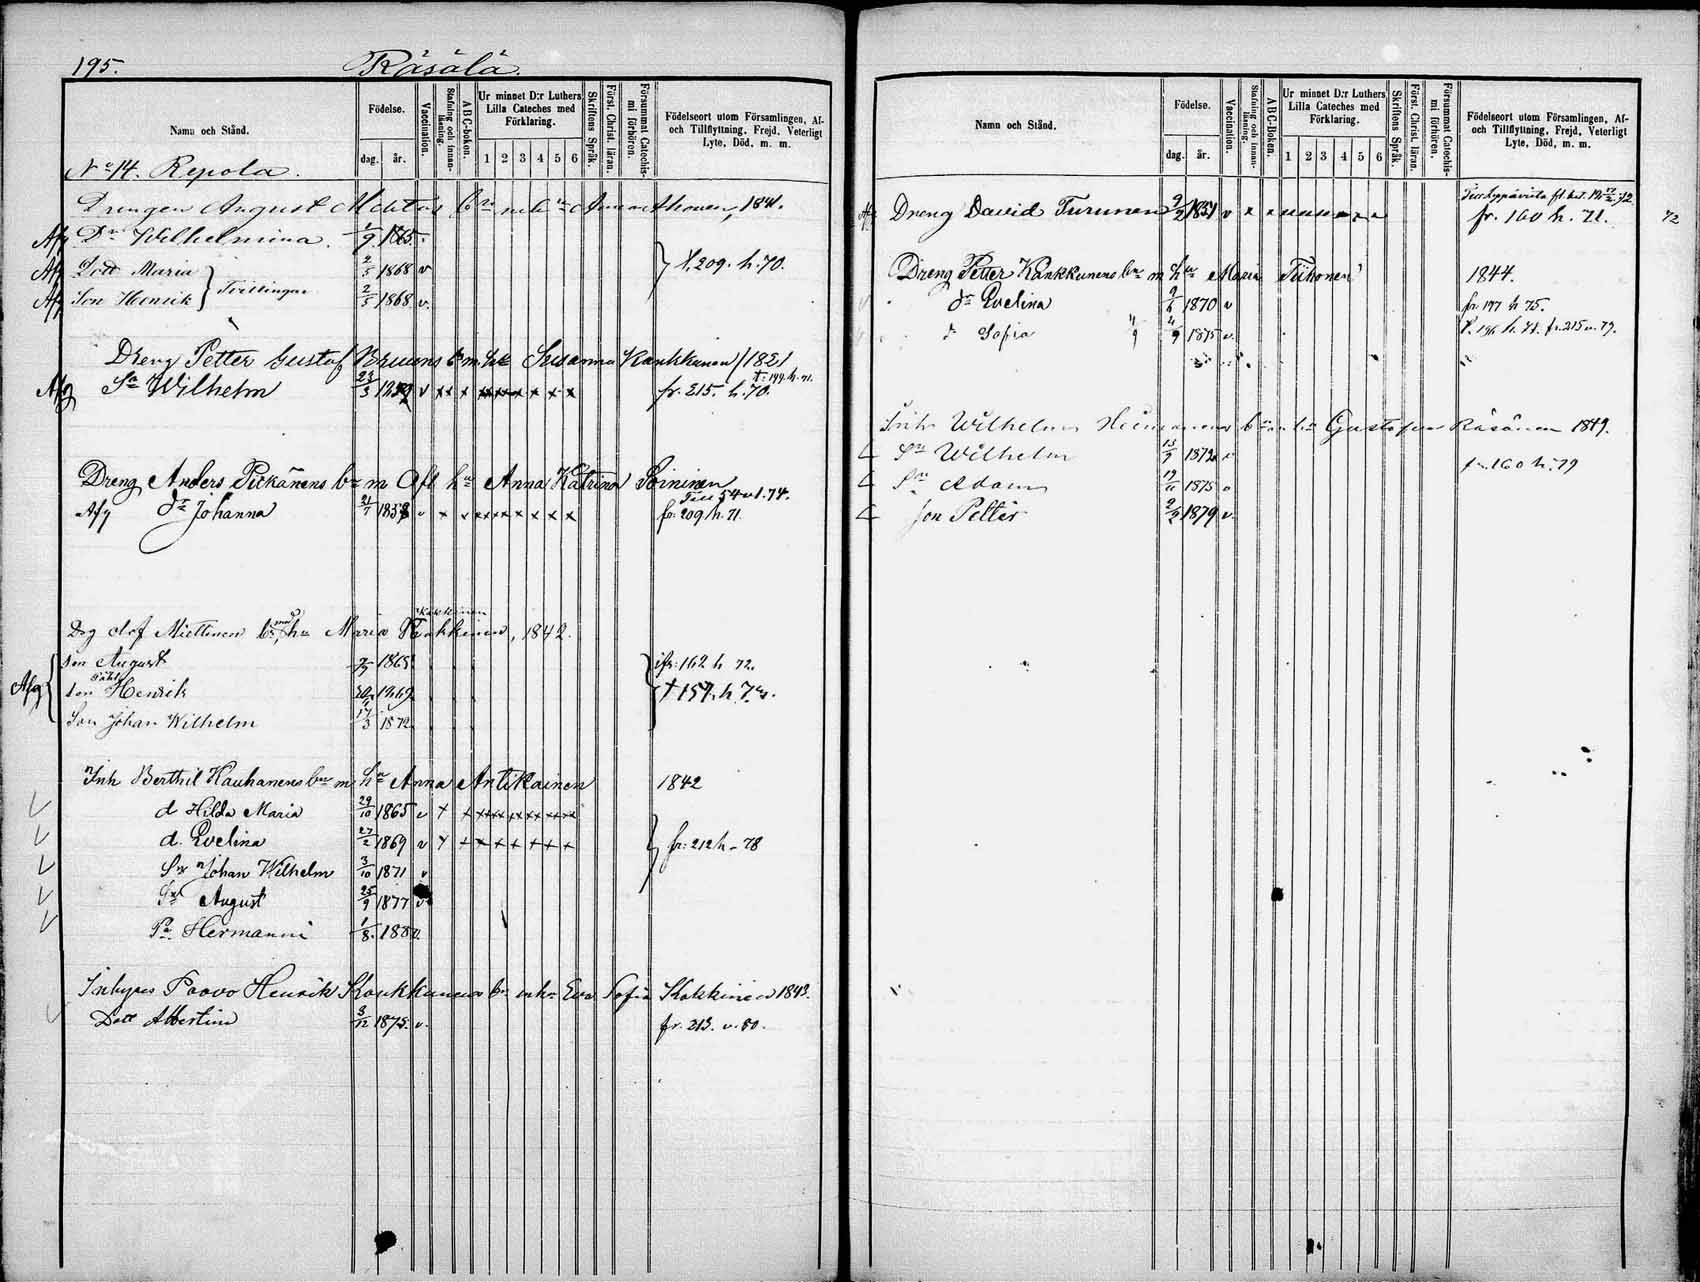 195. Räsälä.
Namn och Stånd.
Födelse.
dag. år.
Vaccination.
Stafning och innan-läsning.
ABC-boken.
Ur minnet D:r Luthers Lilla Cateches med Förklaring.
1 2 3 4 5 6
Skriftens Språk.
Först. Christ. läran.
Försummat Catechis-mi förhören.
Födelseort utom Församlingen, Af- och Tillflyttning, Frejd, Veterligt Lyte, Död, m. m.
No 14. Repola.
Drengen August 1841.
Afg Dr Wilhelmina. 1/9 1865.
Afg Dott Maria 2/5 1868 v
Tvillingar
t. 209. h. 70.
Afg Son Henrik 2/5 1868 v.
Dreng Petter Gustaf Susanna Kaukkanen /1821
t: 199. h. 71.
Afg Sn Wilhelm 23/3 v x x x x x x x x x fr. 215. h. 70.
Dreng Anders Pitkänens bn m Afl hu Anna Katrina Soininen
Till 54 v 1.74.
Afg dr Johanna 21/7 v x x x x x x x x x fr. 209 h. 71.
Kakkinen
Drg Olof Miettinen bn med hu Maria 1842.
Son August 1865 ifr: 162 h 72.
Påhl
Afg son Henrik 1869 t 157. h
Son Johan Wilhelm 17/3 1872
Inh Berthil Hauhanens bn m hu Anna Antikainen 1842
d Hilda Maria 29/10 1865 v x x x x x x x x x
d. Evelina 27/2 1869 v x x x x x x x x fr: 212 h - 78
Sn Johan Wilhelm 3/10 1871 v
Sn August 25/9 1877 v
Pn Hermanni 1/8. 188 v.
Inhyses Paavo Henrik Kaukkanens bn m hu Eva Sofia Kakkinen 1843.
Dott Albertina 3/12 1875. v. fr. 213. v. 80.
Namn och Stånd.
Födelse.
dag. år.
Vaccination.
Stafning och innan-läsning.
ABC-Boken.
Ur minnet D:r Luthers Lilla Cateches med Förklaring.
1 2 3 4 5 6
Skriftens Språk.
Först. Christ. läran.
Försummat Catechis-mi förhören.
Födelseort utom Församlingen, Af- och Tillflyttning, Frejd, Veterligt Lyte, Död, m. m.
Afg Dreng David Turunen 9/2 1851 v x x x x x x x x fr. 160 h. 71. 72
Dreng Petter Kaukkanens bn m hu Maria Tiihonen 1844.
dr Evelina 9/6 1870 v fr. 197 h 75.
d Sofia 4/9 1875 v. fr. 215 v. 79.
Inh. Wilhelm bn m hu Gustafva Räsänen 1849.
Sn Wilhelm 13/9 1872 v
fr. 160 h. 79
Sn Adam 1875 v
Son Petter 2/2 1879 v.